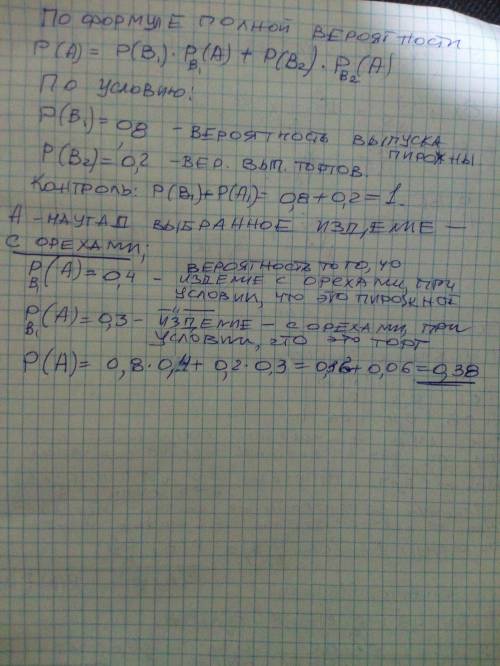 ПО ФОРМУЛЕ ПОЛНОЙ ВЕРОЯТНОСТИ
P(A) = P(B₁)·P_B₁(A) + P(B₂)·P_B₂(A)
ПО УСЛОВИЮ:
P(B₁)= 0,8 - ВЕРОЯТНОСТЬ ВЫПУСКА ПИРОЖНЫ
P(B₂)= 0,2 - ВЕР. ВЫП. ТОРТОВ.
КОНТРОЛЬ: P(B₁)+P(A₁)= 0,8+0,2=1.
A - НАУГАД ВЫБРАННОЕ ИЗДЕЛИЕ -
С ОРЕХАМИ;
P_B₁(A)=0,4 - ВЕРОЯТНОСТЬ ТОГО, ЧО
ИЗДЕЛИЕ С ОРЕХАМИ, ПРИ
УСЛОВИИ, ЧТО ЭТО ПИРОЖНОЕ
P_B₁(A)=0,3 - ИЗДЕЛИЕ - С ОРЕХАМИ, ПРИ
УСЛОВИИ, ЧТО ЭТО ТОРТ
P(A)= 0,8·0,4+ 0,2·0,3= + 0,06=0,38